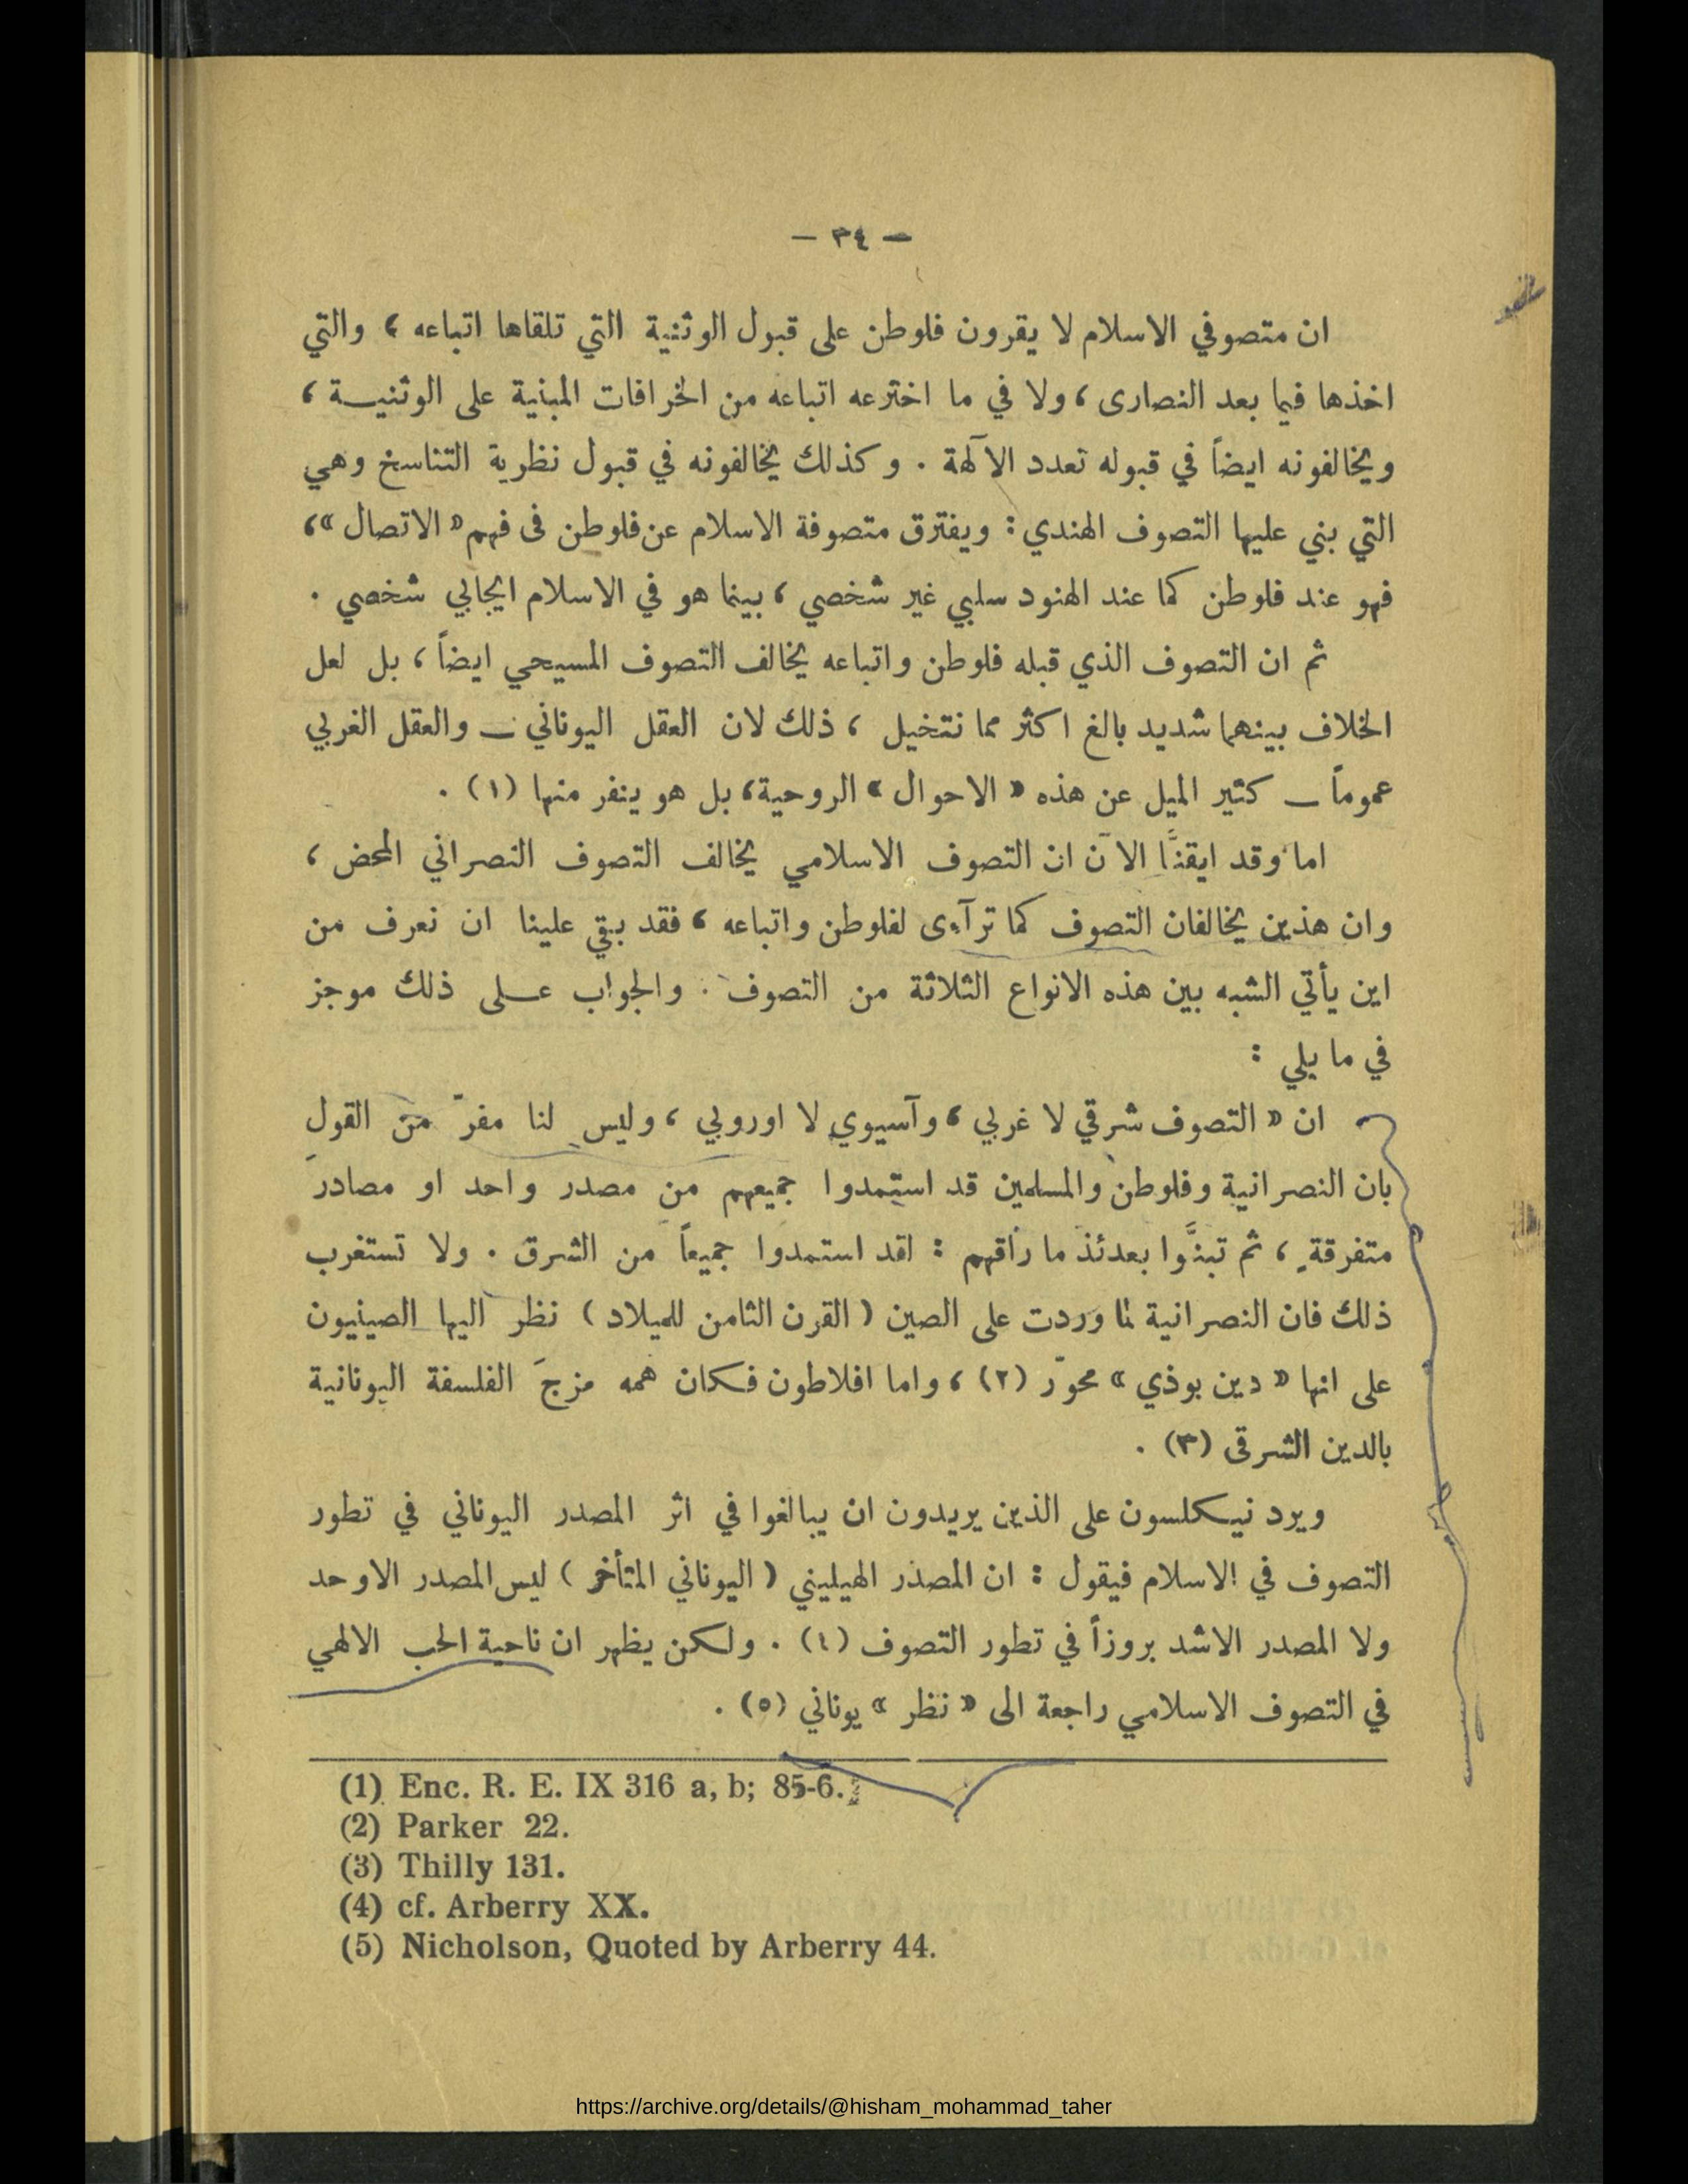 — ٣٤ —
ان متصوفي الاسلام لا يقرون فلوطن على قبول الوثنية التي تلقاها اتباعه ، والتي
اخذها فيما بعد النصارى ، ولا في ما اخترعه اتباعه من الخرافات المبنية على الوثنيـــة ،
ويخالفونه ايضاً في قبوله تعدد الآلهة . وكذلك يخالفونه في قبول نظرية التناسخ وهي
التي بني عليها التصوف الهندي : ويفترق متصوفة الاسلام عن فلوطن في فهم « الاتصال » ،
فهو عند فلوطن كما عند الهنود سلبي غير شخصي ، بينما هو في الاسلام ايجابي شخصي .
ثم ان التصوف الذي قبله فلوطن واتباعه يخالف التصوف المسيحي ايضاً ، بل لعل
الخلاف بينهما شديد بالغ اكثر مما نتخيل ، ذلك لان العقل اليوناني — والعقل الغربي
عموماً — كثير الميل عن هذه « الاحوال » الروحية، بل هو ينفر منها (١) .
اما وقد ايقنَّا الآن ان التصوف الاسلامي يخالف التصوف النصراني المحض ،
وان هذين يخالفان التصوف كما ترآءى لفلوطن واتباعه ، فقد بقي علينا ان نعرف من
اين يأتي الشبه بين هذه الانواع الثلاثة من التصوف . والجواب عـــلى ذلك موجز
في ما يلي :
ان « التصوف شرقي لا غربي ، وآسيوي لا اوروبي ، وليس لنا مفرّ من القول
بان النصرانية وفلوطن والمسلمين قد استمدوا جميعهم من مصدر واحد او مصادرَ
متفرقةٍ ، ثم تبنَّوا بعدئذ ما راقهم : لقد استمدوا جميعاً من الشرق . ولا تستغرب
ذلك فان النصرانية لما وردت على الصين ( القرن الثامن للميلاد ) نظر اليها الصينيون
على انها « دين بوذي » محوّر (٢) ، واما افلاطون فكان همه مزجَ الفلسفة اليونانية
بالدين الشرقي (٣) .
ويرد نيكلسون على الذين يريدون ان يبالغوا في اثر المصدر اليوناني في تطور
التصوف في الاسلام فيقول : ان المصدر الهيليني ( اليوناني المتأخر ) ليس المصدر الاوحد
ولا المصدر الاشد بروزاً في تطور التصوف (٤) . ولكن يظهر ان ناحية الحب الالهي
في التصوف الاسلامي راجعة الى « نظر » يوناني (٥) .
(1) Enc. R. E. IX 316 a, b; 85-6.
(2) Parker 22.
(3) Thilly 131.
(4) cf. Arberry XX.
(5) Nicholson, Quoted by Arberry 44.
https://archive.org/details/@hisham_mohammad_taher